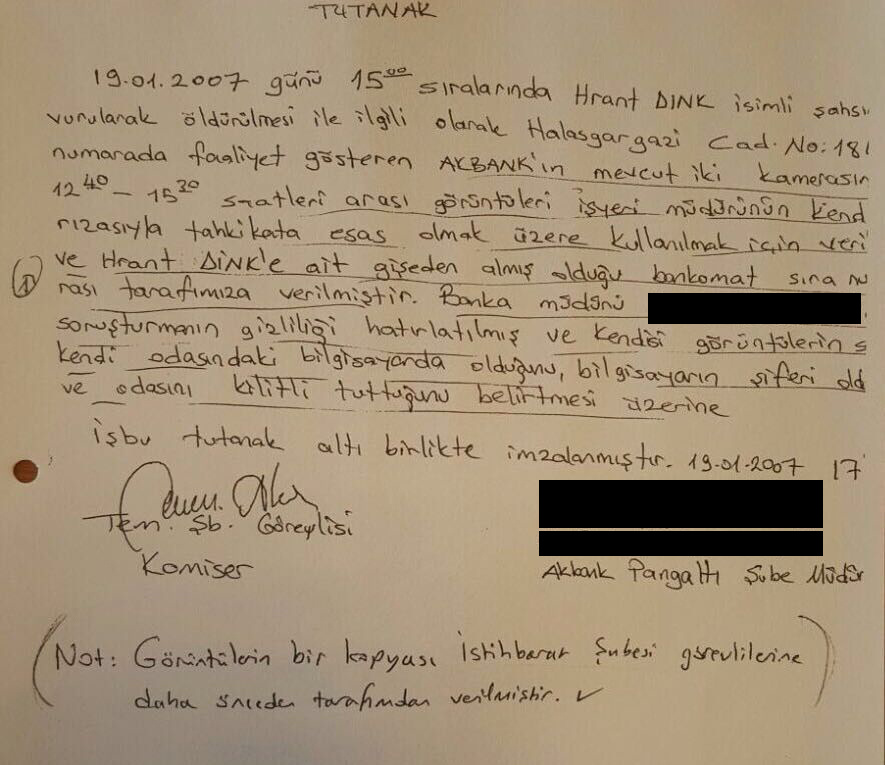 TUTANAK
19.01.2007 günü 15⁰⁰ sıralarında Hrant DINK isimli şahsı
vurularak öldürülmesi ile ilgili olarak Halasgargazi Cad. No: 181
numarada faaliyet gösteren AKBANK'ın mevcut iki kamerasın
12⁴⁰ - 15³⁰ saatleri arası görüntüleri işyeri müdürünün kend
rızasıyla tahkikata esas olmak üzere kullanılmak için veri
ve Hrant DINK'e ait gişeden almış olduğu bankomat sıra nu
1
rası tarafımıza verilmiştir. Banka müdürü
soruşturmanın gizliliği hatırlatılmış ve kendisi görüntülerin s
kendi odasındaki bilgisayarda olduğunu, bilgisayarın şifreli old
ve odasını kilitli tuttuğunu belirtmesi üzerine
işbu tutanak altı birlikte imzalanmıştır. 19.01.2007 17
Tem. Şb. Görevlisi
Komiser
Akbank Pangaltı Şube Müdür
(Not: Görüntülerin bir kopyası İstihbarat Şubesi görevlilerine
daha önceden tarafımdan verilmiştir. ✓)